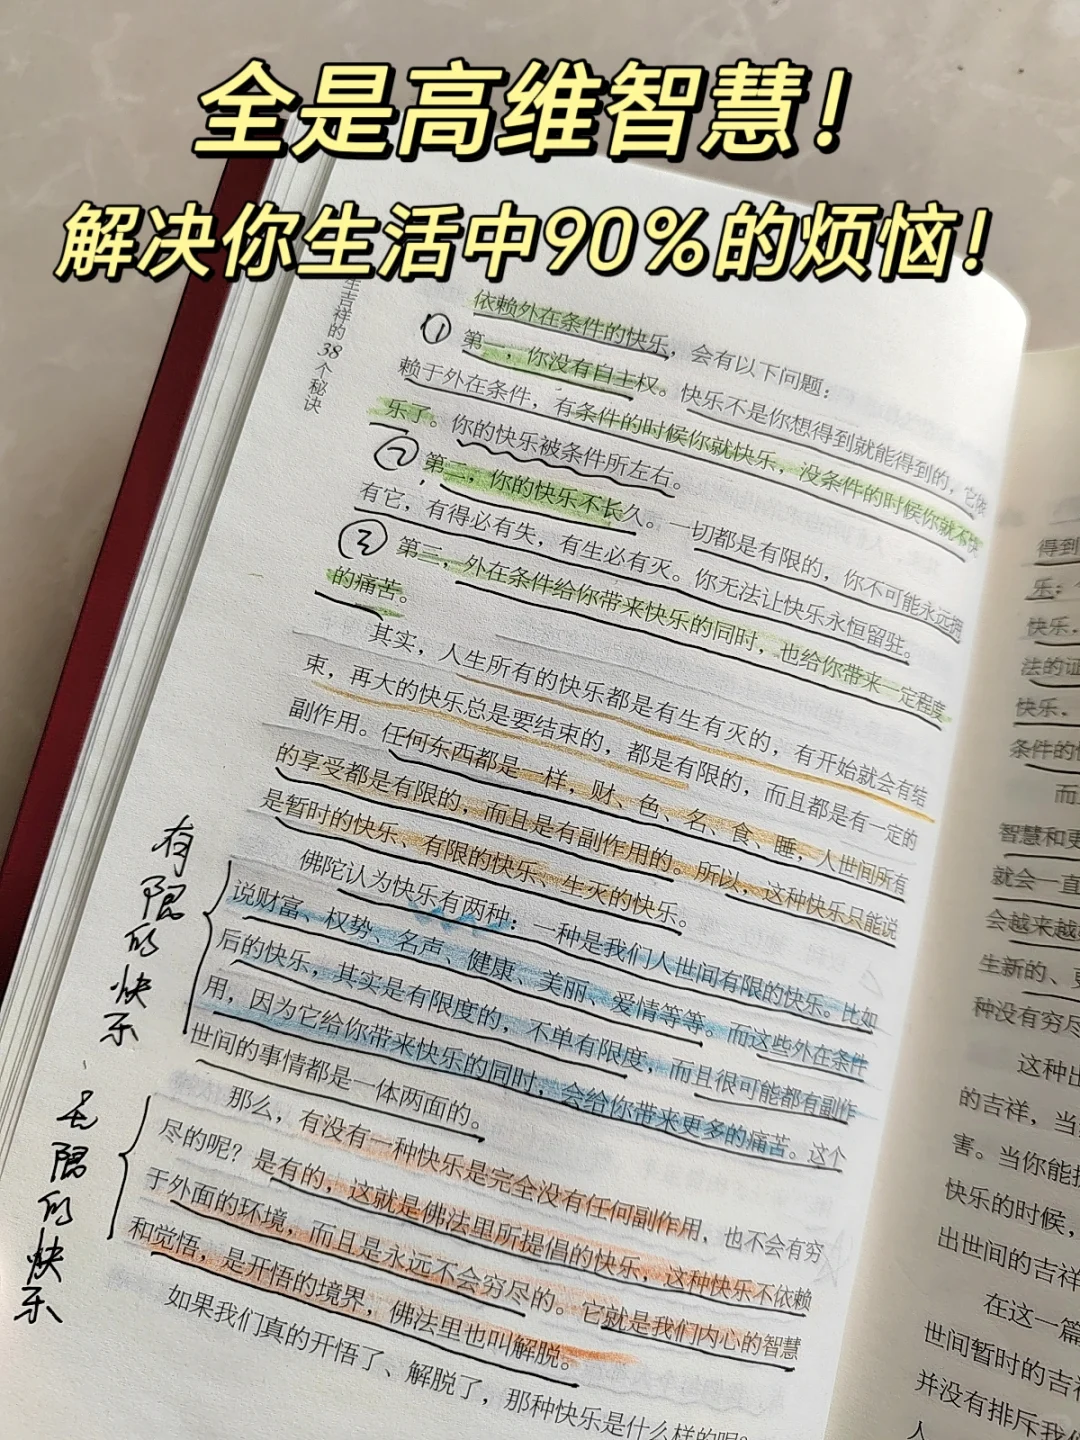 全是高维智慧！
解决你生活中90%的烦恼！
生吉祥的38个秘诀
依赖外在条件的快乐，会有以下问题：
① 第一，你没有自主权。快乐不是你想得到就能得到的，它依
赖于外在条件，有条件的时候你就快乐，没条件的时候你就不快
乐了。你的快乐被条件所左右。
② 第二，你的快乐不长久。一切都是有限的，你不可能永远拥
有它，有得必有失，有生必有灭。你无法让快乐永恒留驻。
③ 第三，外在条件给你带来快乐的同时，也给你带来一定程度
的痛苦。
其实，人生所有的快乐都是有生有灭的，有开始就会有结
束，再大的快乐总是要结束的，都是有限的，而且都是有一定的
副作用。任何东西都是一样，财、色、名、食、睡，人世间所有
的享受都是有限的，而且是有副作用的。所以，这种快乐只能说
是暂时的快乐、有限的快乐、生灭的快乐。
有限的快乐
佛陀认为快乐有两种：一种是我们人世间有限的快乐。比如
说财富、权势、名声、健康、美丽、爱情等等。而这些外在条件
后的快乐，其实是有限度的，不单有限度，而且很可能都有副作
用，因为它给你带来快乐的同时，会给你带来更多的痛苦。这个
世间的事情都是一体两面的。
无限的快乐
那么，有没有一种快乐是完全没有任何副作用、也不会有穷
尽的呢？是有的，这就是佛法里所提倡的快乐，这种快乐不依赖
于外面的环境，而且是永远不会穷尽的。它就是我们内心的智慧
和觉悟，是开悟的境界，佛法里也叫解脱。
如果我们真的开悟了、解脱了，那种快乐是什么样的呢？
得到
乐：
快乐，
法的证
快乐、
条件的
而
智慧和更
就会一直
会越来越
生新的、更
种没有穷尽
这种出
的吉祥，当
害。当你能
快乐的时候，
出世间的吉祥
在这一篇
世间暂时的吉祥
并没有排斥我
人